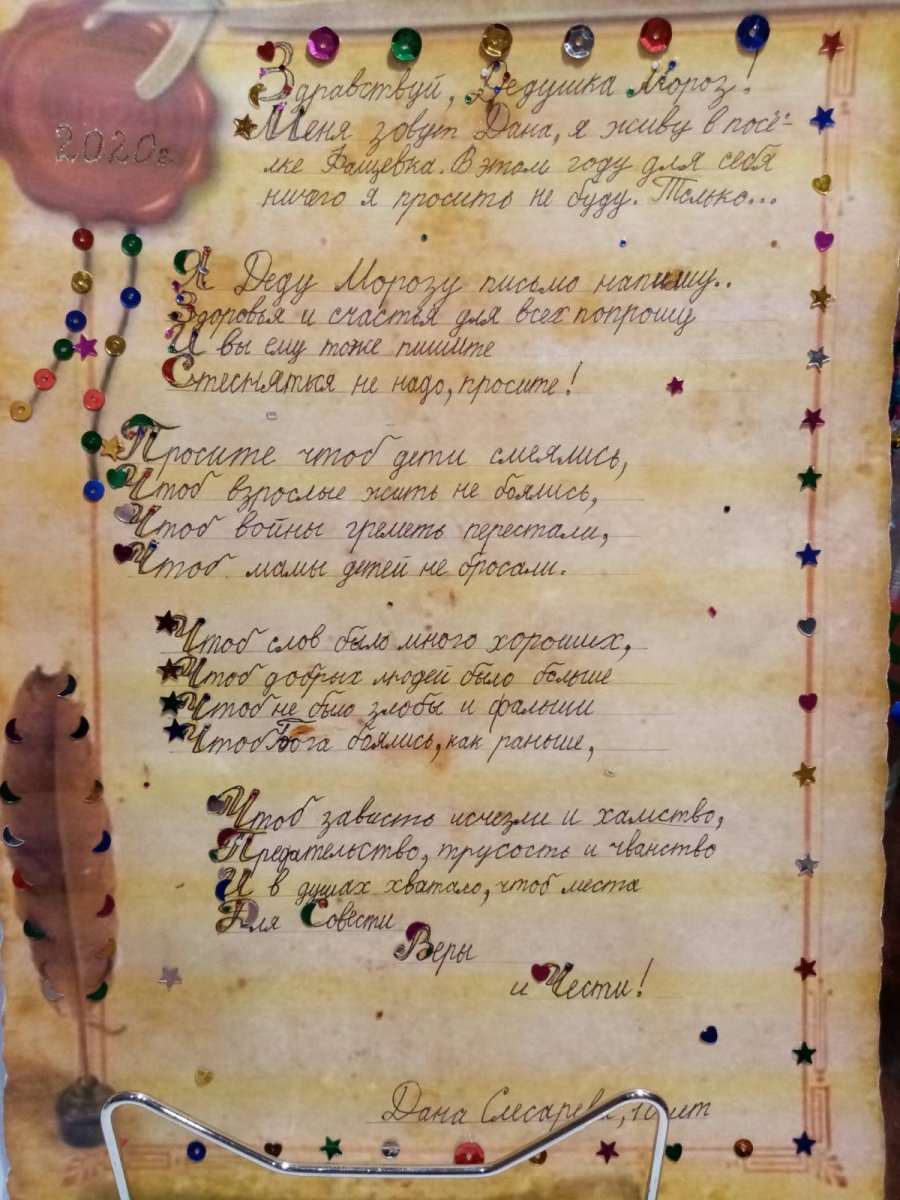 2020г.
Здравствуй, Дедушка Мороз!
Меня зовут Дана, я живу в посё-
лке Фащевка. В этом году для себя
ничего я просить не буду. Только...
Я Деду Морозу письмо напишу..
Здоровья и счастья для всех попрошу
И вы ему тоже пишите
Стесняться не надо, просите!
Просите чтоб дети смеялись,
Чтоб взрослые жить не боялись,
Чтоб войны греметь перестали,
Чтоб мамы детей не бросали.
Чтоб слов было много хороших,
Чтоб добрых людей было больше
Чтоб не было злобы и фальши
Чтоб Бога боялись, как раньше,
Чтоб зависть исчезли и хамство,
Предательство, трусость и чванство
И в душах хватало, чтоб места
Для Совести
Веры
и Чести!
Дана Слесарева, лет